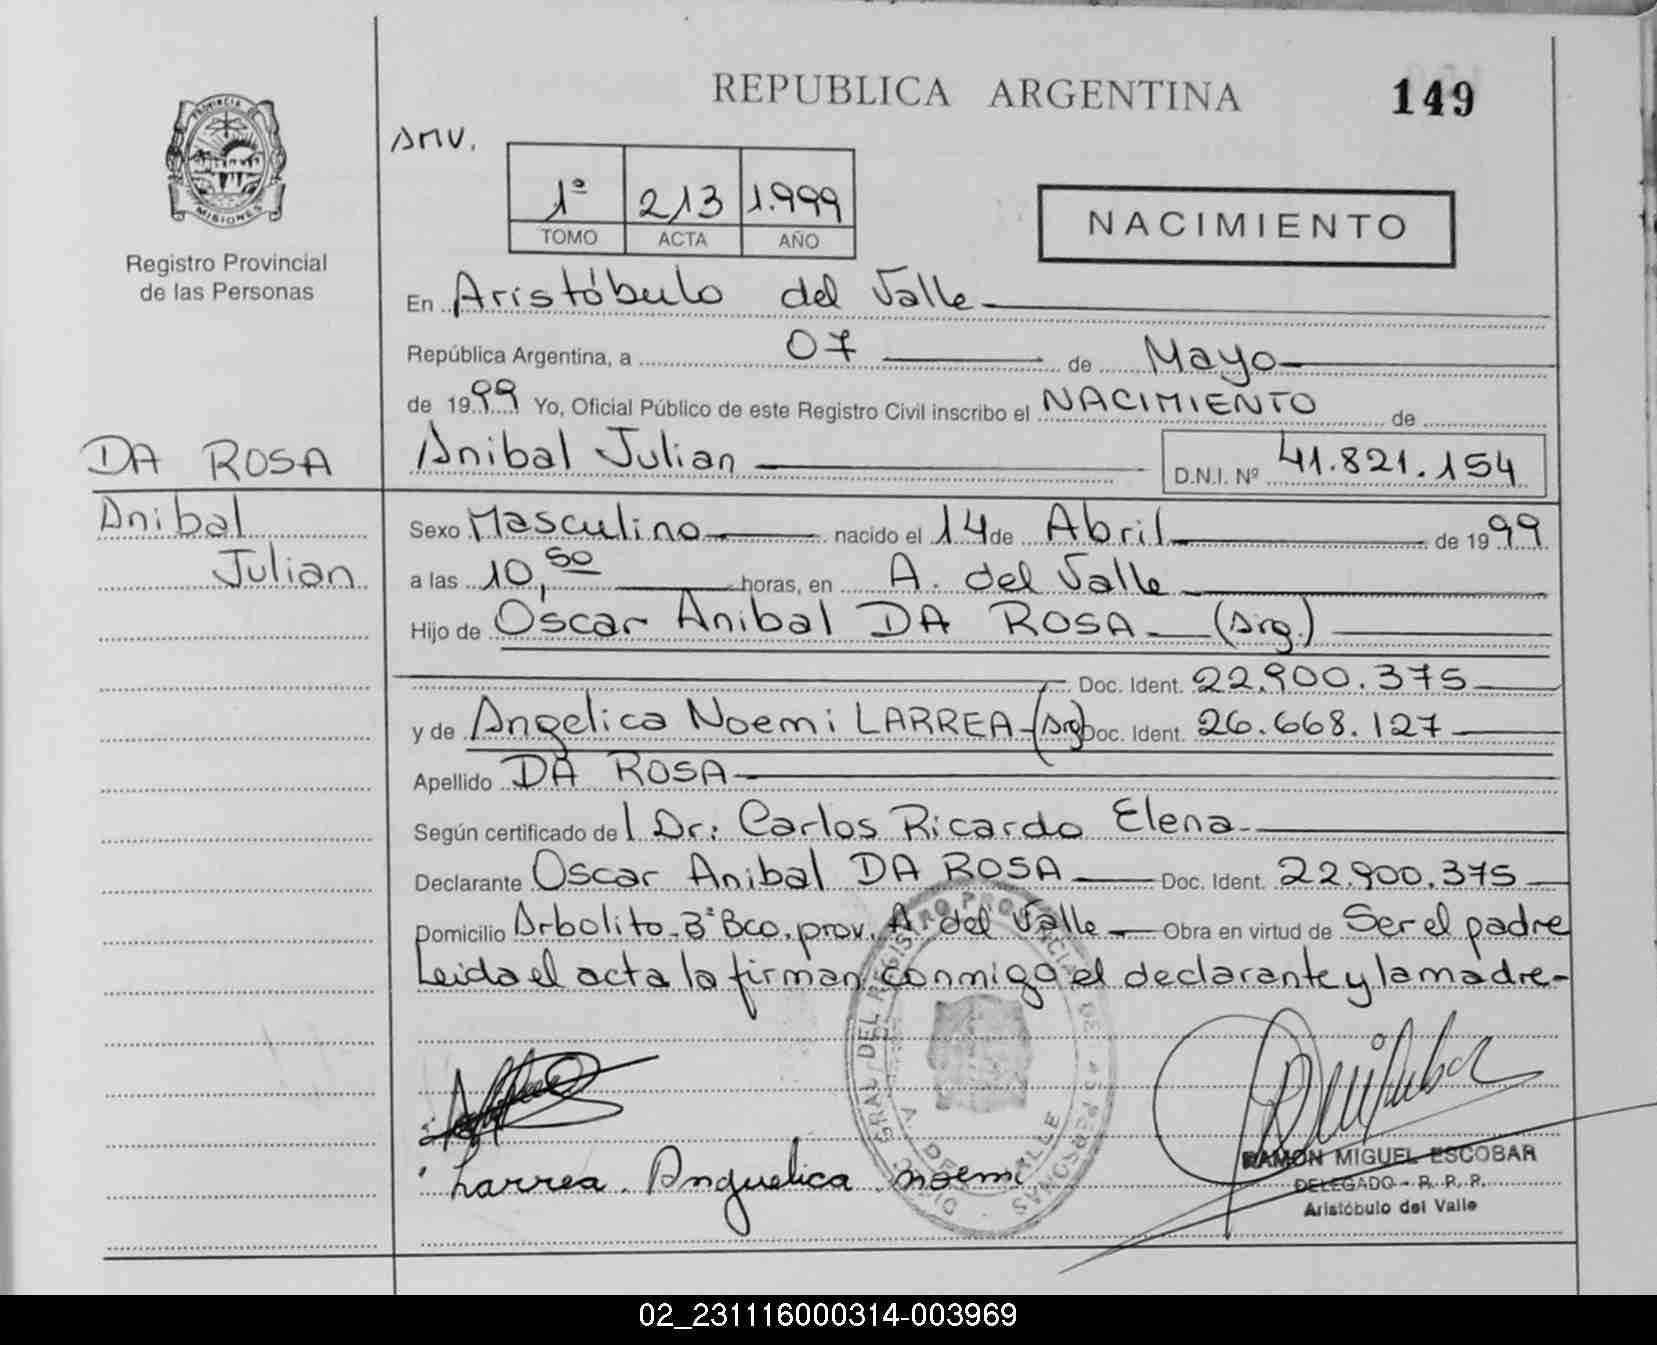 REPUBLICA ARGENTINA
149
PROVINCIA DE
MISIONES
Registro Provincial
de las Personas
AMV.
1º 213 1.999
TOMO ACTA AÑO
NACIMIENTO
En Aristóbulo del Valle
República Argentina, a 07 de Mayo
de 1999 Yo, Oficial Público de este Registro Civil inscribo el NACIMIENTO de
DA ROSA
Anibal Julian D.N.I. Nº 41.821.154
Anibal
Julian
Sexo Masculino nacido el 14 de Abril de 1999
a las 10,50 horas, en A. del Valle
Hijo de Oscar Anibal DA ROSA (Arg.)
Doc. Ident. 22.900.375
y de Angelica Noemi LARREA (Arg) Doc. Ident. 26.668.127
Apellido DA ROSA
Según certificado del Dr: Carlos Ricardo Elena
Declarante Oscar Anibal DA ROSA Doc. Ident. 22.900.375
Domicilio Arbolito-Bº Bco. prov. A. del Valle Obra en virtud de Ser el padre
Leida el acta la firman conmigo el declarante y la madre-
Larrea Anguelica noemi
RAMON MIGUEL ESCOBAR
DELEGADO - R. P. P.
Aristóbulo del Valle
GRAL DEL REGISTRO PROVINCIAL DE PERSONAS
A. DEL VALLE
02_231116000314-003969